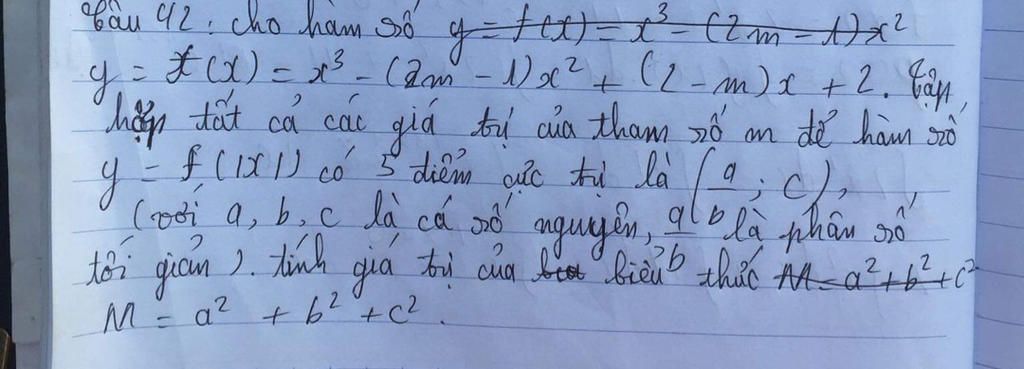 Câu 42: Cho hàm số y = f(x) = x³ - (2m - 1)x²
y = f(x) = x³ - (2m - 1)x² + (2 - m)x + 2. Tập
hợp tất cả các giá trị của tham số m để hàm số
y = f(|x|) có 5 điểm cực trị là (a/b; c),
(với a, b, c là cá số nguyên, a/b là phân số
tối giản). tính giá trị của biểu thức M = a² + b² + c²
M = a² + b² + c².